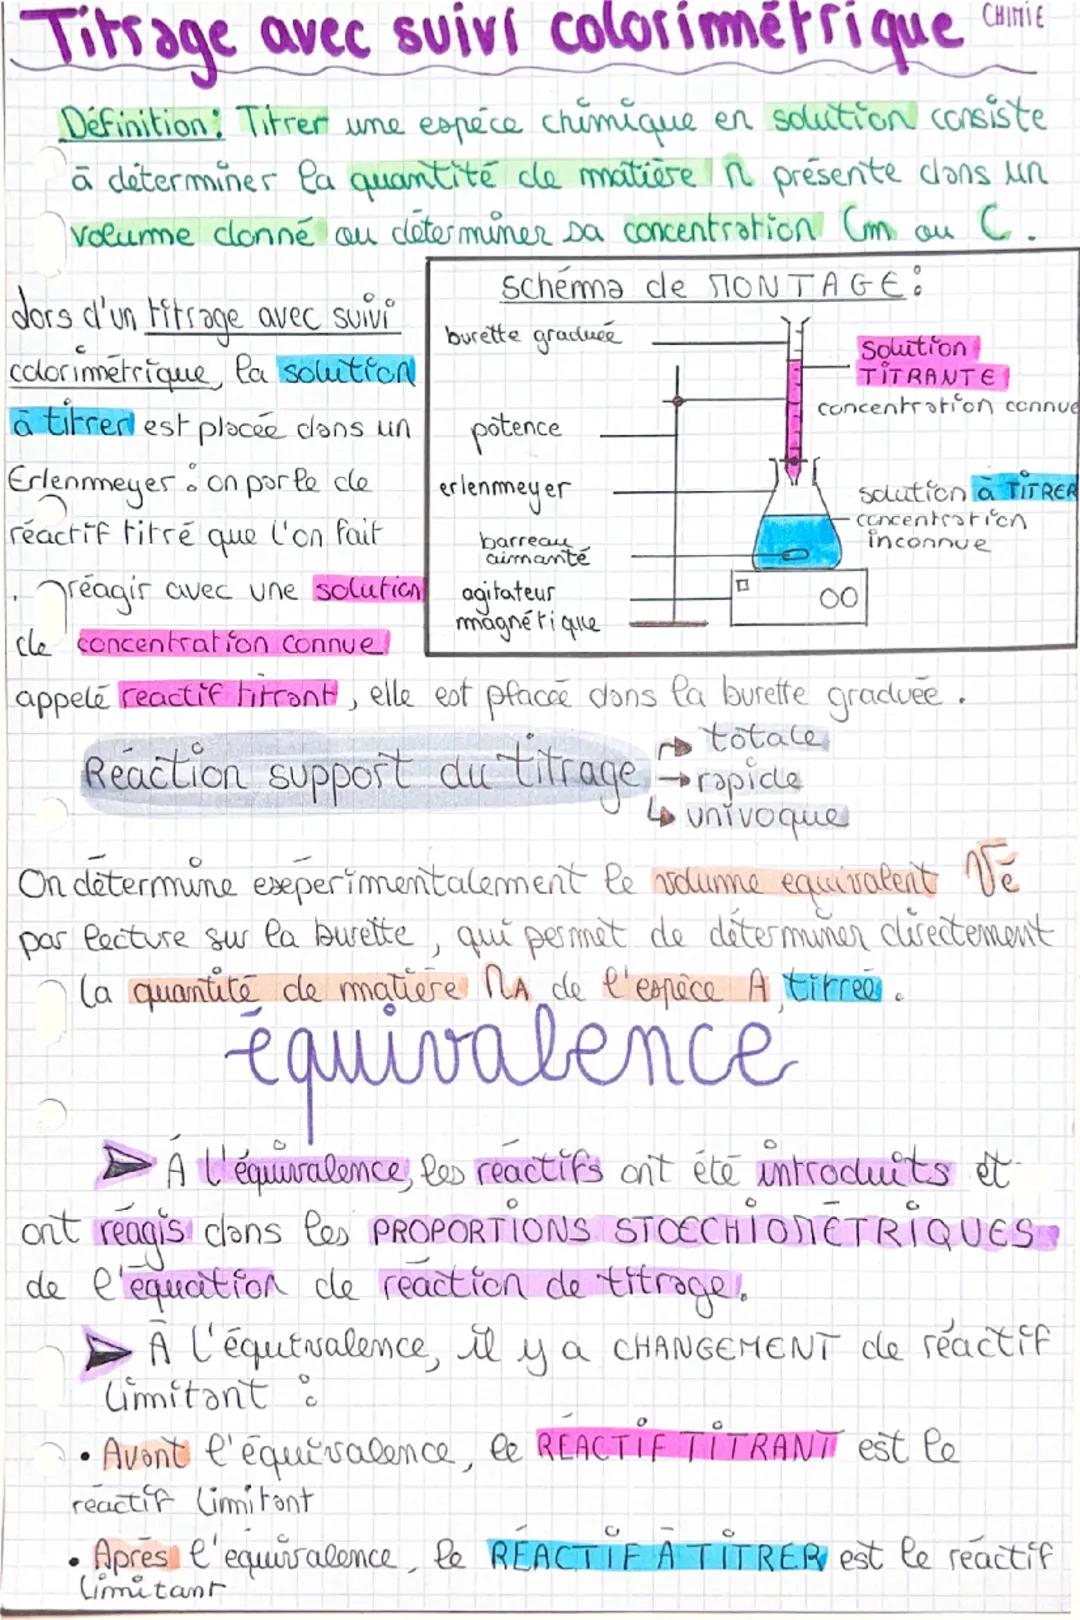 Titrage avec suivi colorimmétrique CHIMIE
Définition: Titrer une espéce chimique en solution consiste
à déterminer la quantité de matière n présente dans un
volume donné ou déterminer sa concentration Cm ou C.
schéma de MONTAGE:
burette graduée
Solution
TITRANTE
concentration connue
potence
erlenmeyer
solution à TITRER
concentration
inconnue
barreau
aimanté
agitateur
magnétique
Lors d'un titrage avec suivi
colorimmétrique, la solution
à titrer est placée dans un
Erlenmeyer : on parle de
réactif titré que l'on fait
réagir avec une solution
de concentration connue
appelé reactif titrant, elle est placée dans la burette graduée.
Réaction support du titrage
→ totale
→ rapide
↳ univoque
On détermine expérimentalement le volume equivalent Vé
par lecture sur la burette, qui permet de déterminer directement
la quantité de matière nA de l'espèce A titrée.
équivalence
➤ À l'équivalence, les réactifs ont été introduits et
ont réagis dans les PROPORTIONS STOECHIOMÉTRIQUES
de l'équation de réaction de titrage.
➤ À l'équivalence, il y a CHANGEMENT de réactif
limitant :
• Avant l'équivalence, le RÉACTIF TITRANT est le
réactif limitant
• Après l'équivalence, le RÉACTIF À TITRER est le réactif
limitant